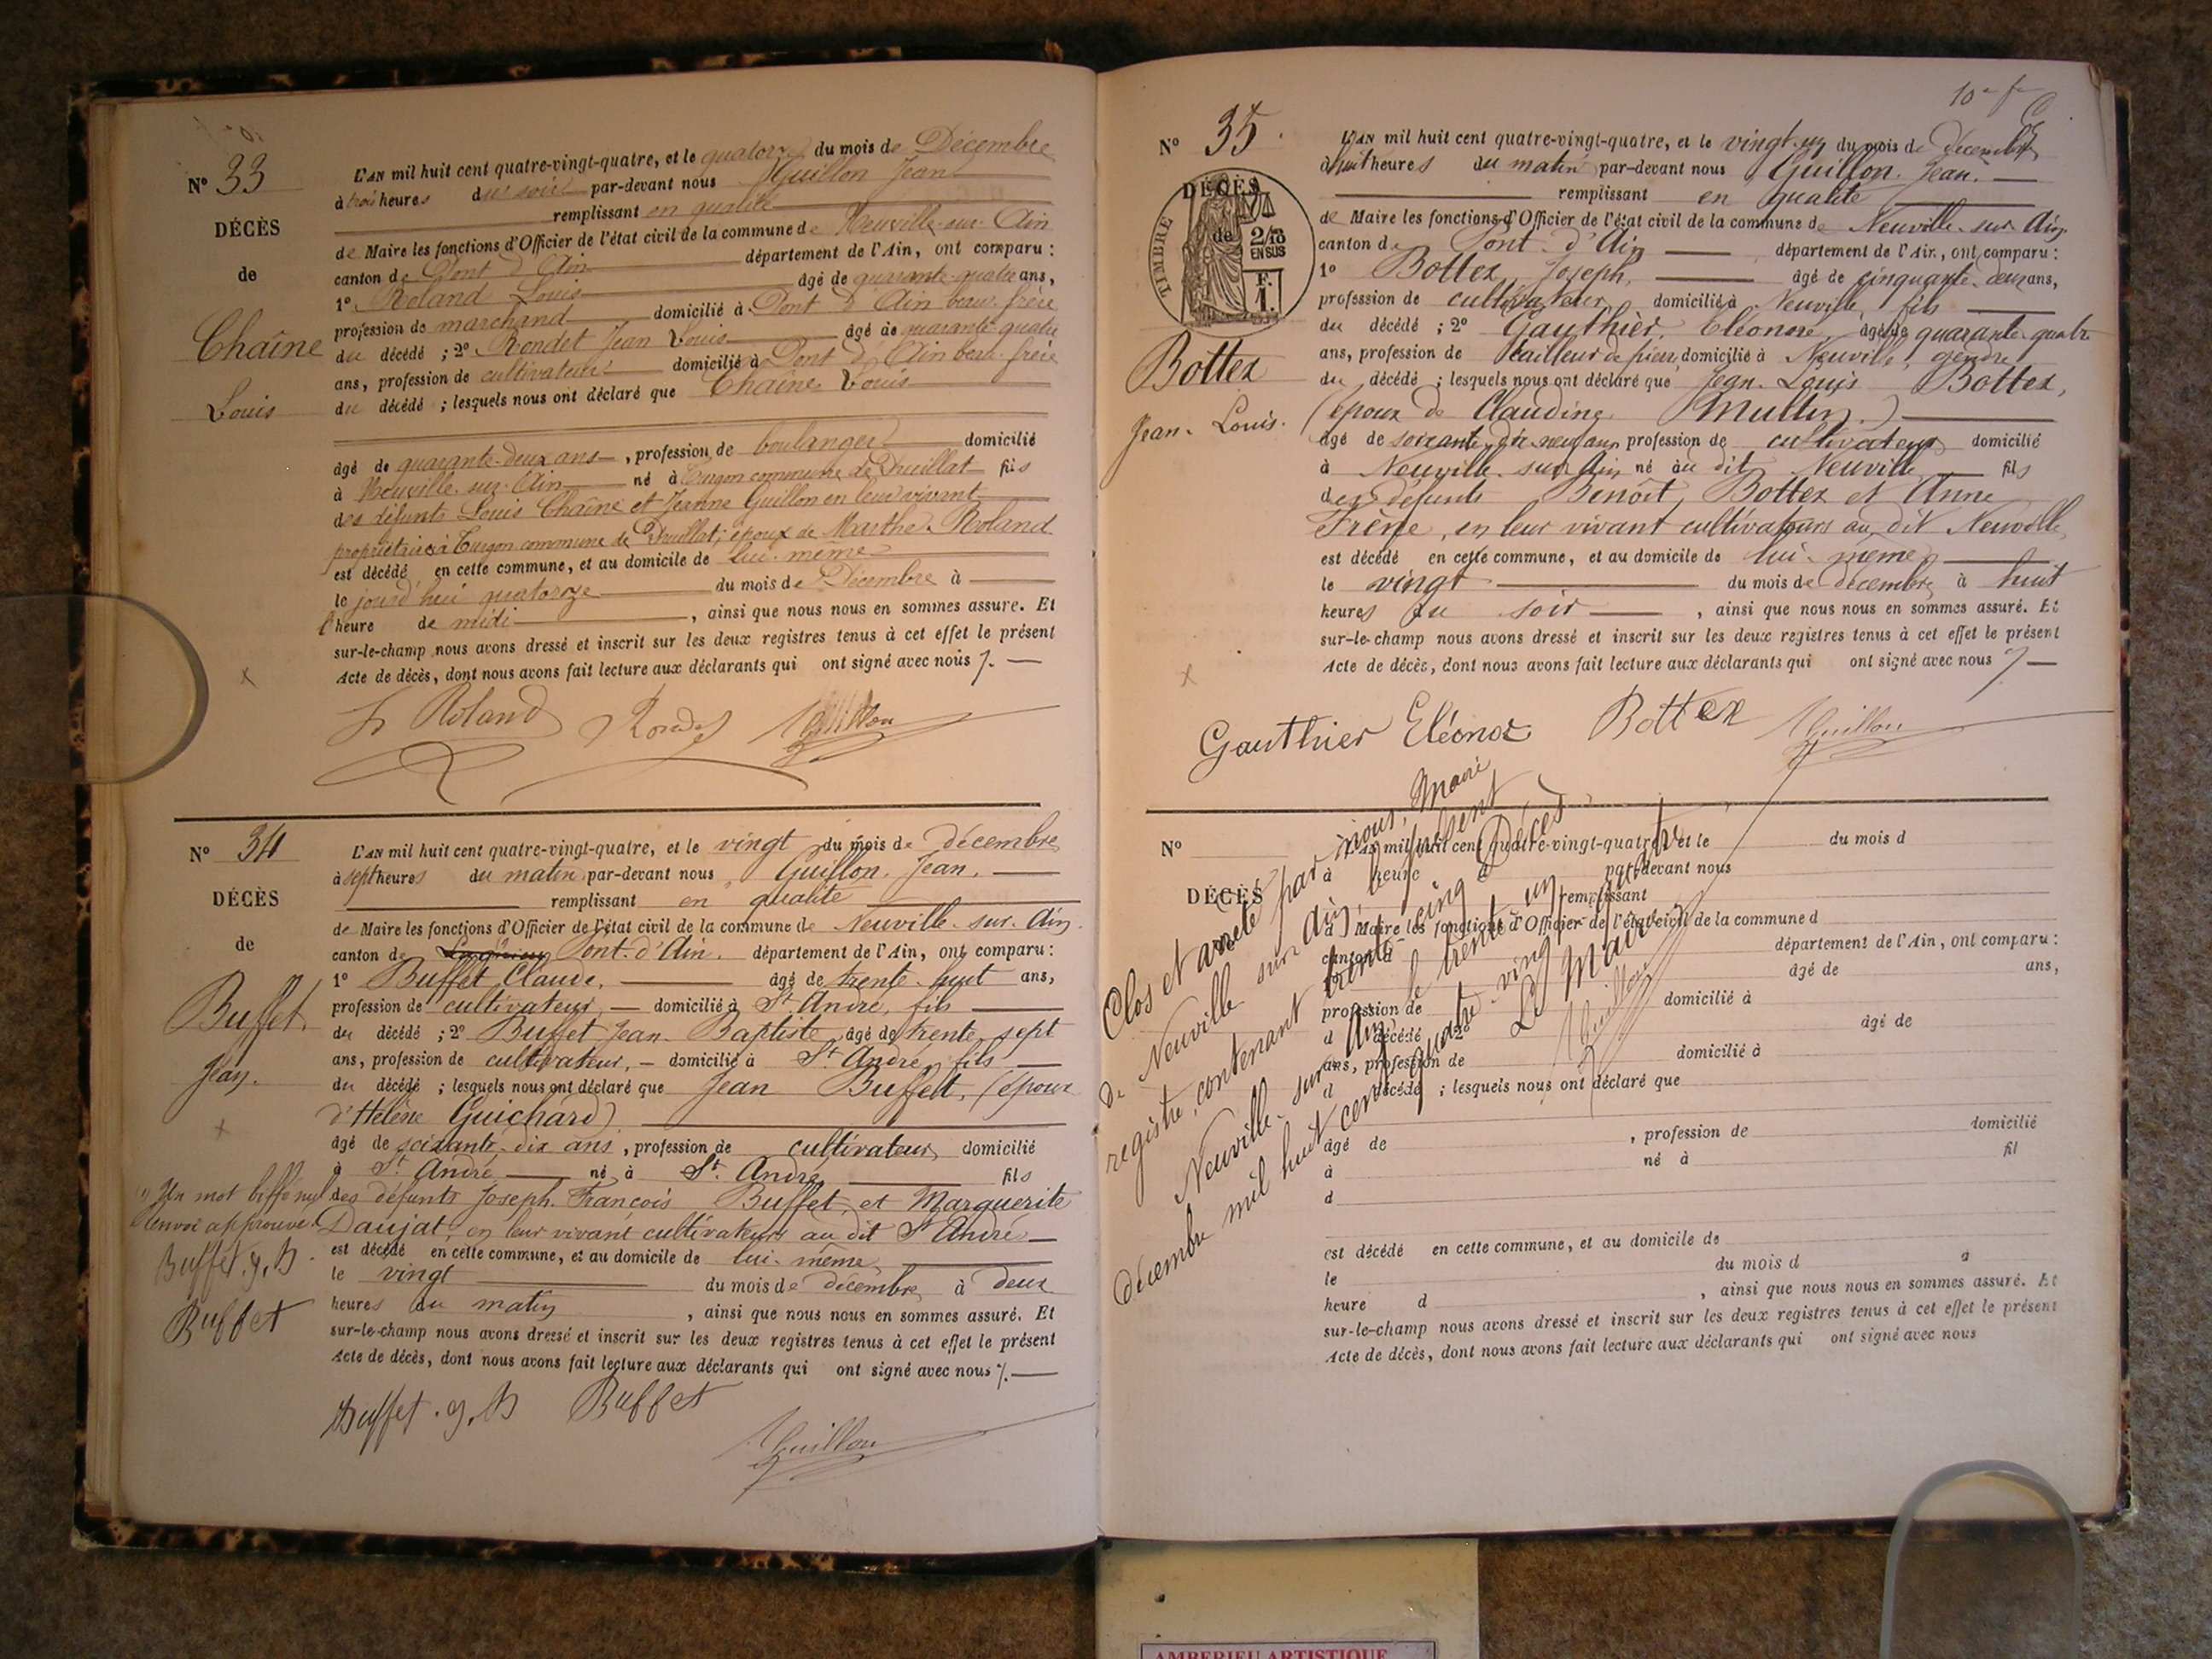 N° 33
DÉCÈS
de
Chaîne
Louis
L'AN mil huit cent quatre-vingt-quatre, et le quatorze du mois de Décembre
à trois heures du soir par-devant nous Guillon Jean
remplissant en qualité
de Maire les fonctions d'Officier de l'état civil de la commune de Neuville-sur-Ain
canton de Pont d'Ain département de l'Ain, ont comparu :
1° Roland Louis âgé de quarante-quatre ans,
profession de marchand domicilié à Pont d'Ain beau-frère
du décédé ; 2° Rondet Jean Louis âgé de quarante-quatre
ans, profession de cultivateur domicilié à Pont d'Ain beau-frère
du décédé ; lesquels nous ont déclaré que Chaîne Louis
âgé de quarante-deux ans, profession de boulanger domicilié
à Neuville-sur-Ain né à Turgon commune de Druillat fils
des défunts Louis Chaîne et Jeanne Guillon en leur vivant
propriétaires à Turgon commune de Druillat ; époux de Marthe Roland
est décédé en cette commune, et au domicile de lui-même
le jourd'hui quatorze du mois de Décembre à
l'heure de midi, ainsi que nous nous en sommes assuré. Et
sur-le-champ nous avons dressé et inscrit sur les deux registres tenus à cet effet le présent
Acte de décès, dont nous avons fait lecture aux déclarants qui ont signé avec nous ⁒.
L Roland Rondet Guillon
N° 34
DÉCÈS
de
Buffet
Jean.
L'AN mil huit cent quatre-vingt-quatre, et le vingt du mois de décembre
à sept heures du matin par-devant nous Guillon, Jean,
remplissant en qualité
de Maire les fonctions d'Officier de l'état civil de la commune de Neuville-sur-Ain.
canton de Pont-d'Ain. département de l'Ain, ont comparu :
1° Buffet Claude, âgé de trente-huit ans,
profession de cultivateur, domicilié à St André, fils
du décédé ; 2° Buffet Jean-Baptiste, âgé de trente-sept
ans, profession de cultivateur, domicilié à St André, fils
du décédé ; lesquels nous ont déclaré que Jean Buffet, (époux
d'Hélène Guichard)
âgé de soixante-dix ans, profession de cultivateur, domicilié
à St André né à St. André, fils
des défunts Joseph-François Buffet, et Marguerite
Daujat, en leur vivant cultivateurs au dit St André
est décédé en cette commune, et au domicile de lui-même,
le vingt du mois de décembre, à deux
heures du matin, ainsi que nous nous en sommes assuré. Et
sur-le-champ nous avons dressé et inscrit sur les deux registres tenus à cet effet le présent
Acte de décès, dont nous avons fait lecture aux déclarants qui ont signé avec nous ⁒.
Un mot biffé nul
renvoi approuvé.
Buffet. J. B
Buffet
Buffet. J. B Buffet
Guillon
N° 35.
DÉCÈS
de
TIMBRE
2/10
EN SUS
F.
1.
Bottex
Jean-Louis.
L'AN mil huit cent quatre-vingt-quatre, et le vingt-un du mois de décembre,
à huit heures du matin par-devant nous Guillon, Jean,
remplissant en qualité
de Maire les fonctions d'Officier de l'état civil de la commune de Neuville-sur-Ain.
canton de Pont-d'Ain département de l'Ain, ont comparu :
1° Bottex, Joseph, âgé de cinquante-deux ans,
profession de cultivateur, domicilié à Neuville, fils
du décédé ; 2° Gauthier, Eléonore, âgé de quarante-quatre
ans, profession de tailleur de pierre, domicilié à Neuville, gendre
du décédé ; lesquels nous ont déclaré que Jean-Louis Bottex,
(époux de Claudine Mullin.)
âgé de soixante-dix-neuf ans, profession de cultivateur, domicilié
à Neuville-sur-Ain, né au dit Neuville, fils
des défunts Benoît, Bottex et Anne
Frêne, en leur vivant cultivateurs au dit Neuville,
est décédé en cette commune, et au domicile de lui-même,
le vingt du mois de décembre, à huit
heures du soir, ainsi que nous nous en sommes assuré. Et
sur-le-champ nous avons dressé et inscrit sur les deux registres tenus à cet effet le présent
Acte de décès, dont nous avons fait lecture aux déclarants qui ont signé avec nous ⁒
Gauthier Eléonor Bottex Guillon
N°
DÉCÈS
L'AN mil huit cent quatre-vingt-quatre, et le du mois d
à heure d par-devant nous
remplissant
d Maire les fonctions d'Officier de l'état civil de la commune d
canton d département de l'Ain, ont comparu :
1° âgé de ans,
profession de domicilié à
d décédé ; 2° âgé de
ans, profession de domicilié à
d décédé ; lesquels nous ont déclaré que
âgé de , profession de domicilié
à né à fil
d
est décédé en cette commune, et au domicile de
le du mois d à
heure d , ainsi que nous nous en sommes assuré. Et
sur-le-champ nous avons dressé et inscrit sur les deux registres tenus à cet effet le présent
Acte de décès, dont nous avons fait lecture aux déclarants qui ont signé avec nous
Clos et arrêté par nous, Maire
de Neuville-sur-Ain, le présent
registre, contenant trente-cinq Décès
Neuville-sur-Ain, le trente-un
décembre mil huit cent quatre-vingt-quatre
Le Maire,
Guillon
AMBERIEU ARTISTIQUE